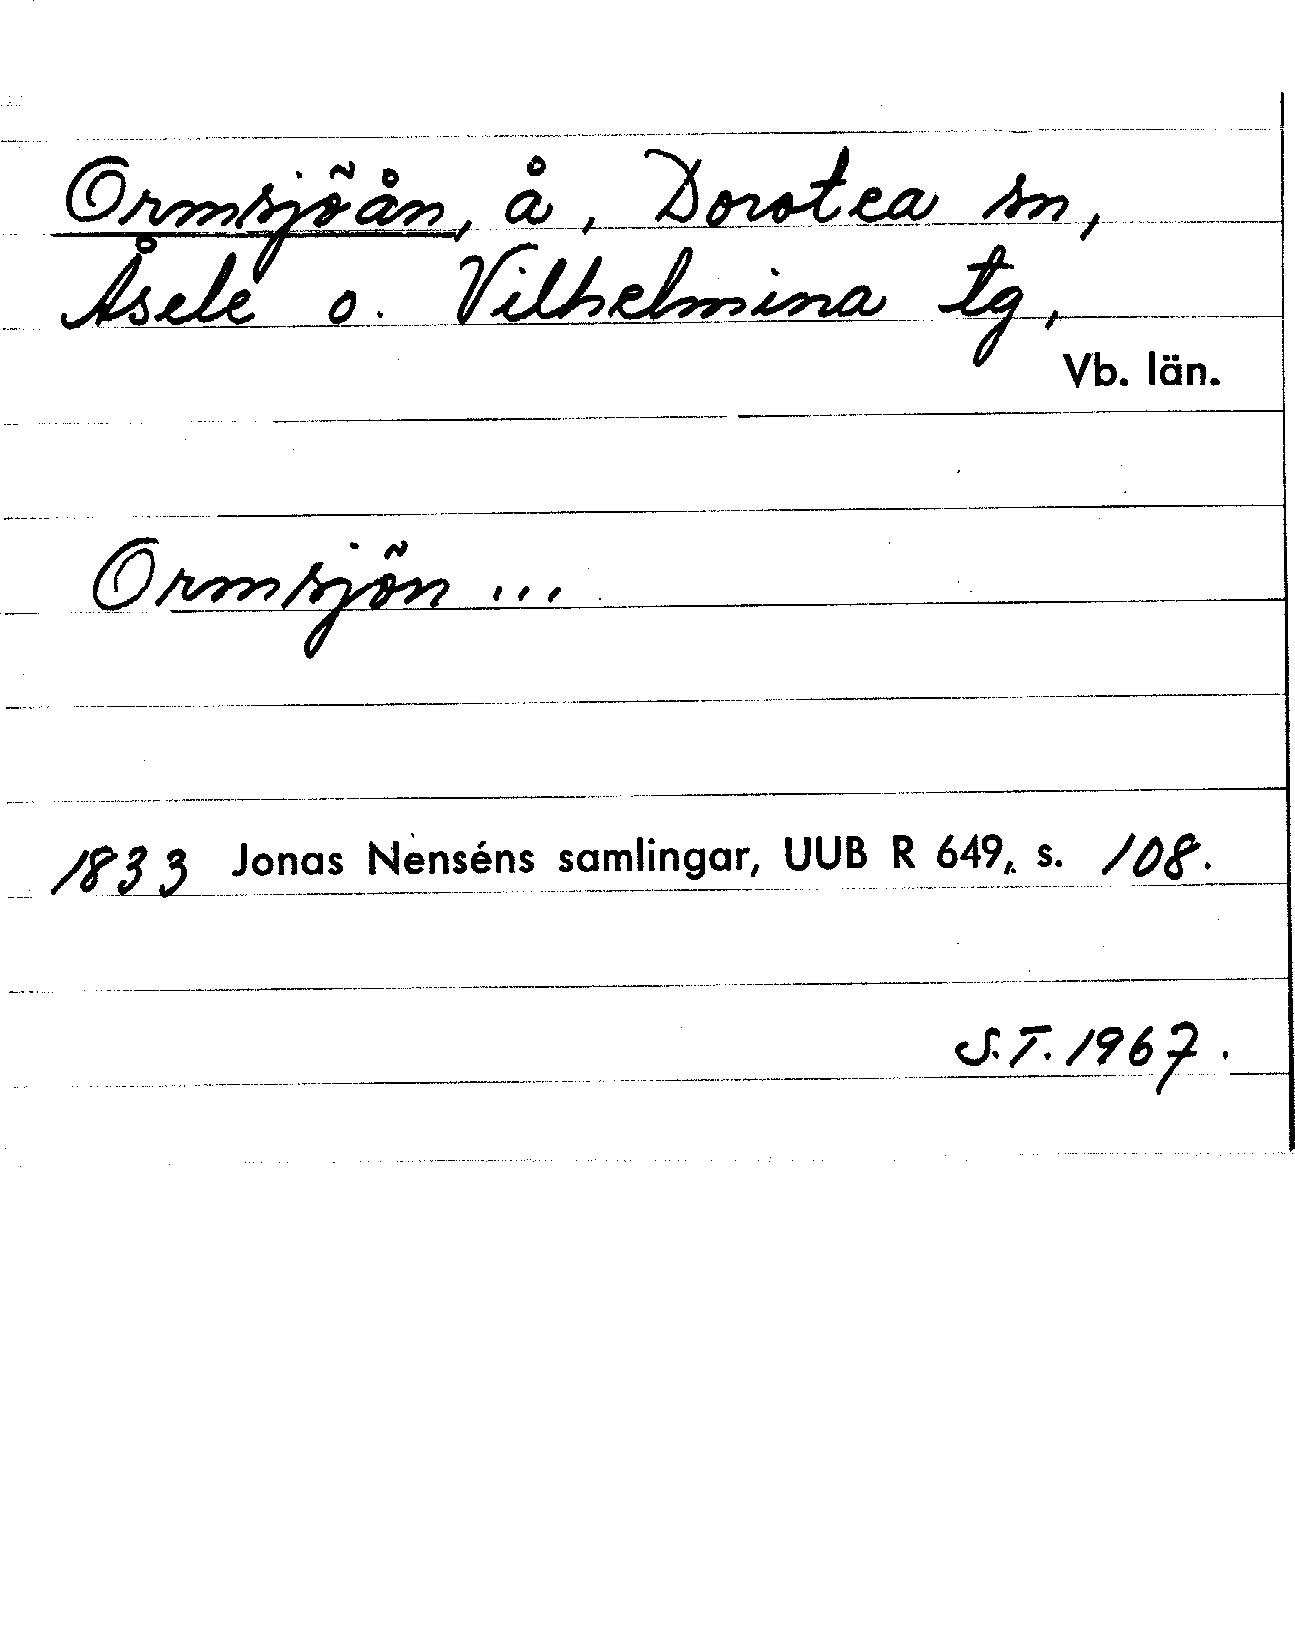 Ormsjöån, å, Dorotea sn,
Åsele o. Vilhelmina tg,
Vb. län.
Ormsjön ...
1833 Jonas Nenséns samlingar, UUB R 649, s. 108.
S.T. 1967.